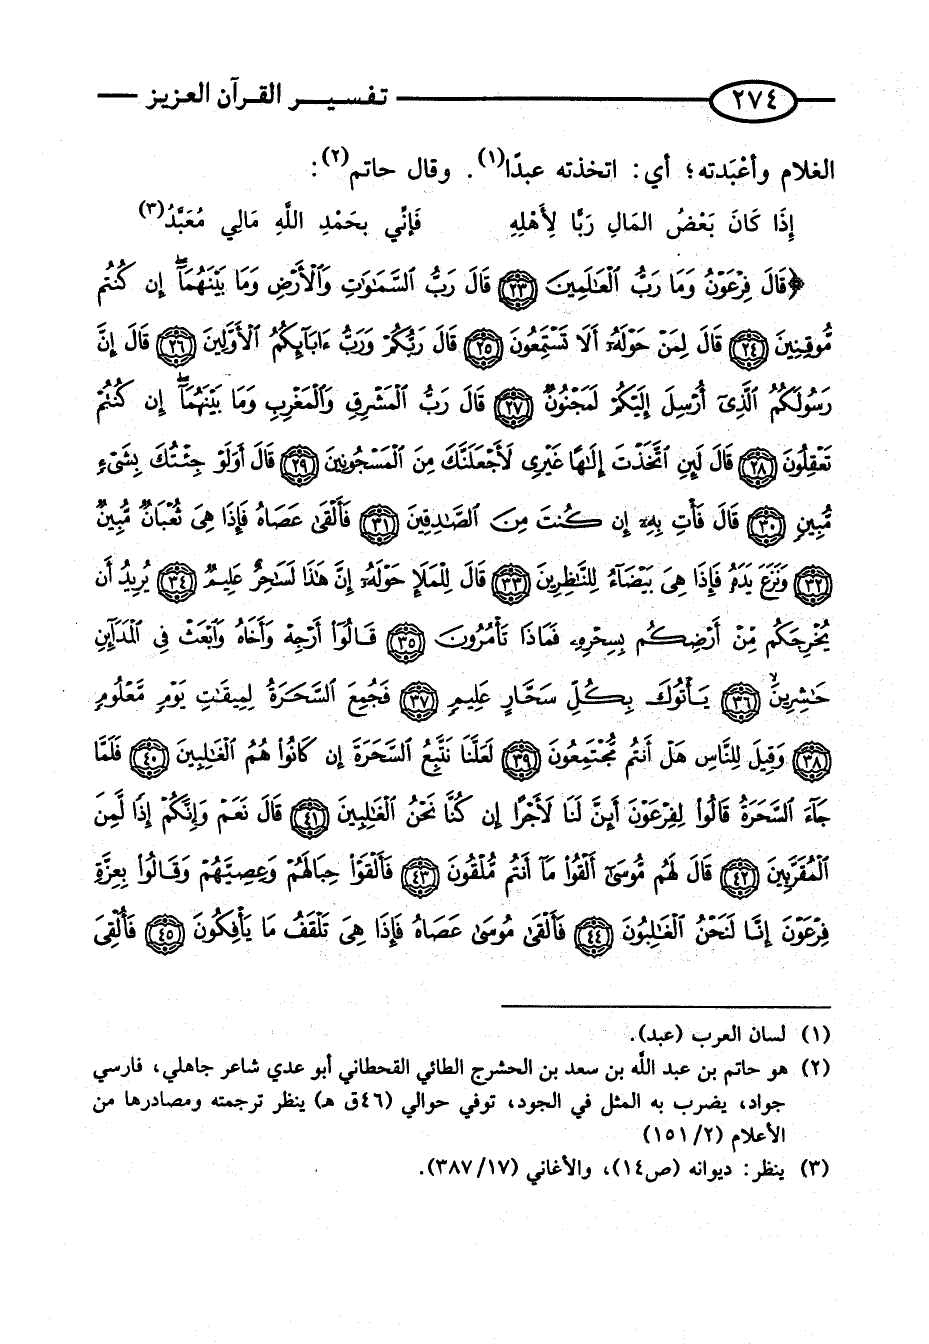 ٢٧٤ تفسير القرآن العزيز
الغلام وأعْبَدته؛ أي: اتخذته عبدًا(١). وقال حاتم(٢):
إِذَا كَانَ بَعْضُ المَالِ رَبًّا لِأَهْلِهِ فَإِنِّي بِحَمْدِ اللَّهِ مَالِي مُعَبَّدُ(٣)
﴿قَالَ فِرْعَوْنُ وَمَا رَبُّ الْعَالَمِينَ ﴿٢٣﴾ قَالَ رَبُّ السَّمَاوَاتِ وَالْأَرْضِ وَمَا بَيْنَهُمَا إِن كُنتُم
مُّوقِنِينَ ﴿٢٤﴾ قَالَ لِمَنْ حَوْلَهُ أَلَا تَسْتَمِعُونَ ﴿٢٥﴾ قَالَ رَبُّكُمْ وَرَبُّ ءَابَآئِكُمُ الْأَوَّلِينَ ﴿٢٦﴾ قَالَ إِنَّ
رَسُولَكُمُ الَّذِىٓ أُرْسِلَ إِلَيْكُمْ لَمَجْنُونٌ ﴿٢٧﴾ قَالَ رَبُّ الْمَشْرِقِ وَالْمَغْرِبِ وَمَا بَيْنَهُمَا إِن كُنتُمْ
تَعْقِلُونَ ﴿٢٨﴾ قَالَ لَئِنِ اتَّخَذْتَ إِلَٰهًا غَيْرِى لَأَجْعَلَنَّكَ مِنَ الْمَسْجُونِينَ ﴿٢٩﴾ قَالَ أَوَلَوْ جِئْتُكَ بِشَىْءٍ
مُّبِينٍ ﴿٣٠﴾ قَالَ فَأْتِ بِهِ إِن كُنتَ مِنَ الصَّادِقِينَ ﴿٣١﴾ فَأَلْقَىٰ عَصَاهُ فَإِذَا هِىَ ثُعْبَانٌ مُّبِينٌ
﴿٣٢﴾ وَنَزَعَ يَدَهُ فَإِذَا هِىَ بَيْضَآءُ لِلنَّاظِرِينَ ﴿٣٣﴾ قَالَ لِلْمَلَإِ حَوْلَهُ إِنَّ هَٰذَا لَسَاحِرٌ عَلِيمٌ ﴿٣٤﴾ يُرِيدُ أَن
يُخْرِجَكُم مِّنْ أَرْضِكُم بِسِحْرِهِ فَمَاذَا تَأْمُرُونَ ﴿٣٥﴾ قَالُوٓا أَرْجِهْ وَأَخَاهُ وَابْعَثْ فِى الْمَدَآئِنِ
حَاشِرِينَ ﴿٣٦﴾ يَأْتُوكَ بِكُلِّ سَحَّارٍ عَلِيمٍ ﴿٣٧﴾ فَجُمِعَ السَّحَرَةُ لِمِيقَاتِ يَوْمٍ مَّعْلُومٍ
﴿٣٨﴾ وَقِيلَ لِلنَّاسِ هَلْ أَنتُم مُّجْتَمِعُونَ ﴿٣٩﴾ لَعَلَّنَا نَتَّبِعُ السَّحَرَةَ إِن كَانُوا هُمُ الْغَالِبِينَ ﴿٤٠﴾ فَلَمَّا
جَآءَ السَّحَرَةُ قَالُوا لِفِرْعَوْنَ أَئِنَّ لَنَا لَأَجْرًا إِن كُنَّا نَحْنُ الْغَالِبِينَ ﴿٤١﴾ قَالَ نَعَمْ وَإِنَّكُمْ إِذًا لَّمِنَ
الْمُقَرَّبِينَ ﴿٤٢﴾ قَالَ لَهُم مُّوسَىٰٓ أَلْقُوا مَآ أَنتُم مُّلْقُونَ ﴿٤٣﴾ فَأَلْقَوْا حِبَالَهُمْ وَعِصِيَّهُمْ وَقَالُوا بِعِزَّةِ
فِرْعَوْنَ إِنَّا لَنَحْنُ الْغَالِبُونَ ﴿٤٤﴾ فَأَلْقَىٰ مُوسَىٰ عَصَاهُ فَإِذَا هِىَ تَلْقَفُ مَا يَأْفِكُونَ ﴿٤٥﴾ فَأُلْقِىَ
(١) لسان العرب (عبد).
(٢) هو حاتم بن عبد اللَّه بن سعد بن الحشرج الطائي القحطاني أبو عدي شاعر جاهلي، فارسي
جواد، يضرب به المثل في الجود، توفي حوالي (٤٦ق هـ) ينظر ترجمته ومصادرها من
الأعلام (٢/ ١٥١)
(٣) ينظر: ديوانه (ص١٤)، والأغاني (١٧/ ٣٨٧).